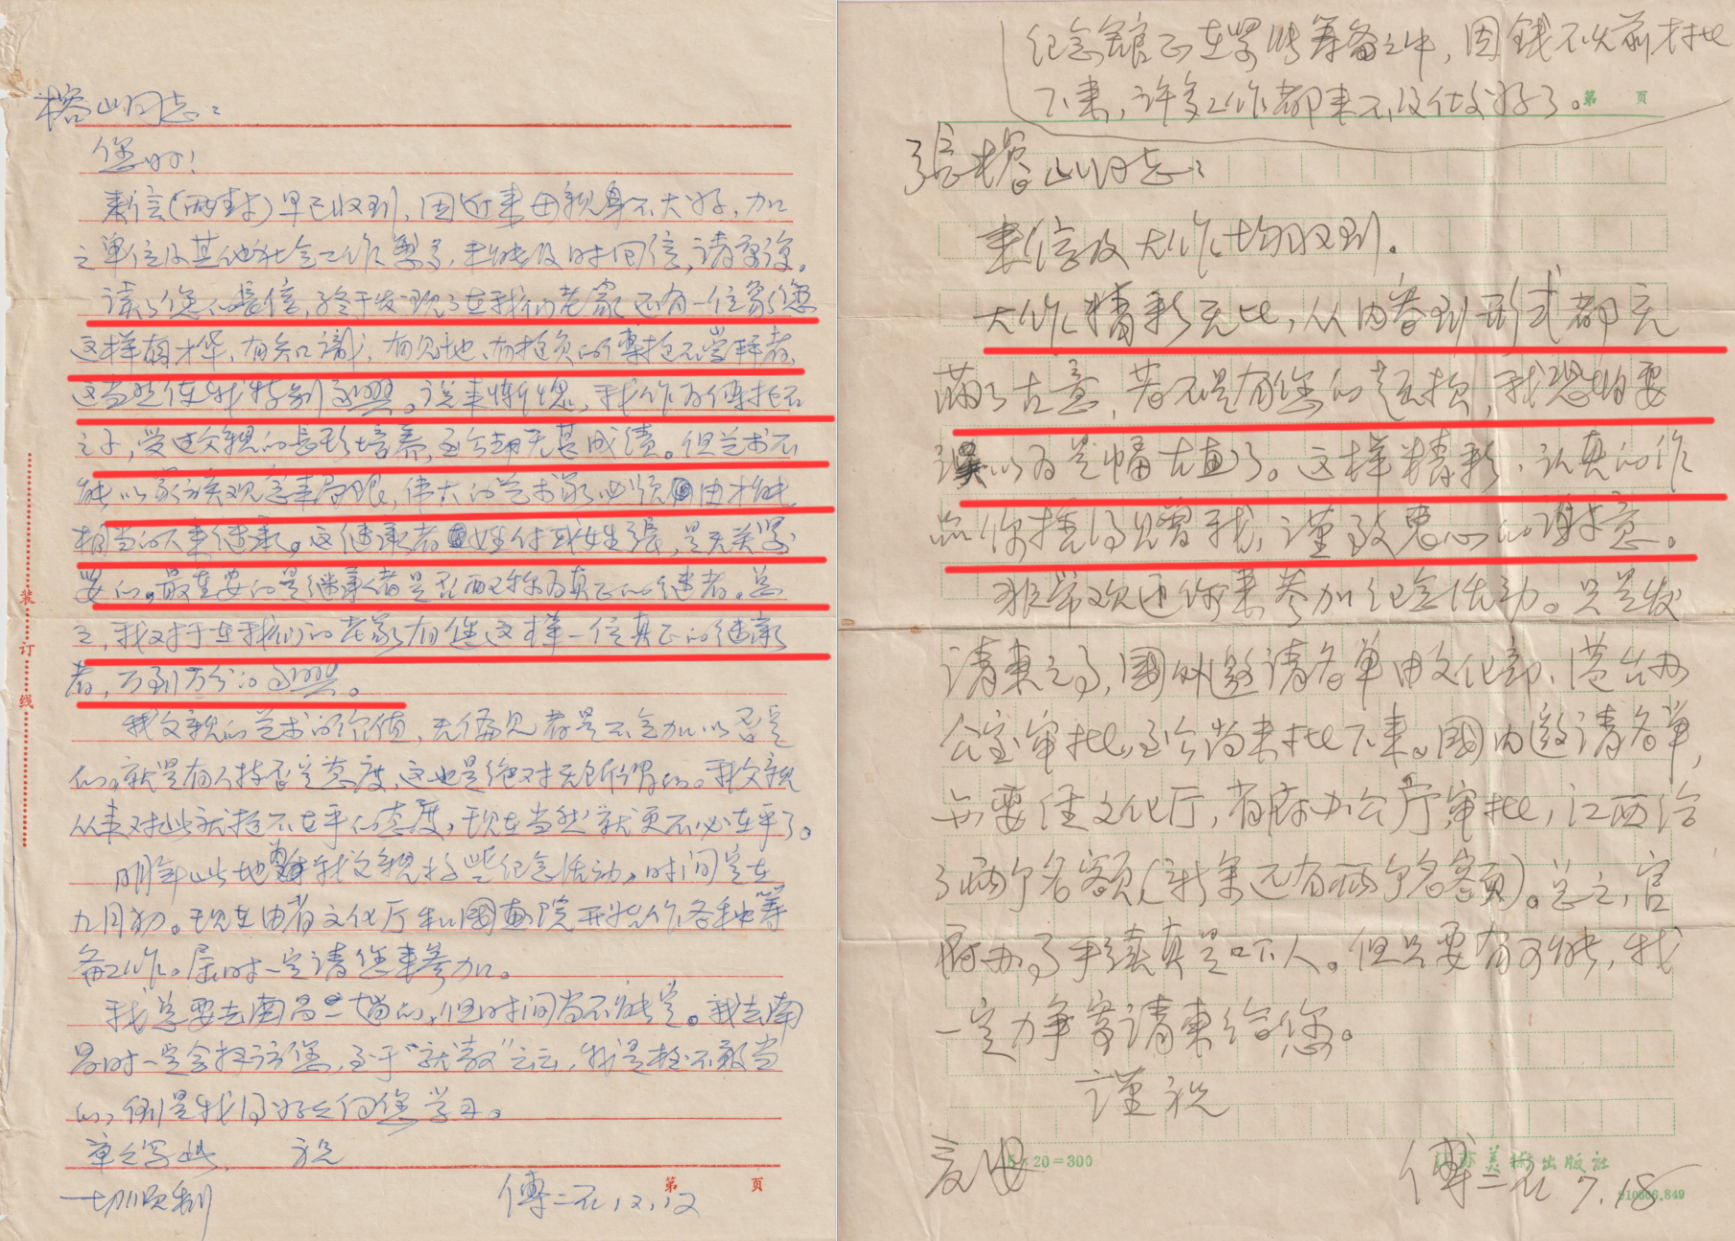 榕山同志：
您好！
来信（两封）早已收到，因近来母亲身不大好，加
之单位及其他社会工作繁多，未能及时回信，请原谅。
读了您的长信，终于发现了在我们老家还有一位象您
这样有才华、有知识、有见地、有抱负的傅抱石崇拜者，
这当然使我特别高兴。说来惭愧，我作为傅抱石
之子，受过父亲的长期培养，至今却无甚成绩。但艺术不
能以家族观念来局限，伟大的艺术家必须由才能
相当的人来继承。这继承者姓付或姓张，是无关紧
要的。最主要的是继承者是否配称为真正的继者。总
之，我对于在我们的老家有您这样一位真正的继承
者，万到万分的高兴。
我父亲的艺术的价值，无偏见者是不会加以否定
的。就是有人持否定态度，这也是绝对无所谓的。我父亲
从来对此就抱不在乎的态度，现在当然就更不必在乎了。
明年此地对我父亲搞些纪念活动，时间定在
九月初。现在由省文化厅和国画院开始作各种筹
备工作。届时一定请您来参加。
我总要去南昌一趟的，但时间尚不能定。我去南
昌时一定会拜访您，至于“就教”云云，我是担不敢当
的，倒是我得好好向您学习。
草草写此， 祝
一切顺利
傅二石 12.12
装订线
第 页
纪念馆正在紧张筹备之中，因钱不久前才批
下来，许多工作都来不及仔做好了。
第 页
张榕山同志：
来信及大作均收到。
大作精彩无比，从内容到形式都充
满了古意，若不是有您的题损，我恐怕要
误以为是幅古画了。这样精彩、认真的作
品你捨得见赠我，谨致衷心的谢意。
非常欢迎你来参加纪念活动。只是发
请柬之事，国外邀请名单由文化部、港台办
公室审批，至今尚未批下来。国内邀请名单，
亦要经文化厅，省府办公厅审批，江西给
了两个名额（新余还有两个名额）。总之，官
府办事手续真是吓人。但只要有可能，我
一定力争寄请柬给您。
谨祝
夏安
傅二石 7.18
15×20=300
江苏美术出版社
910606.849